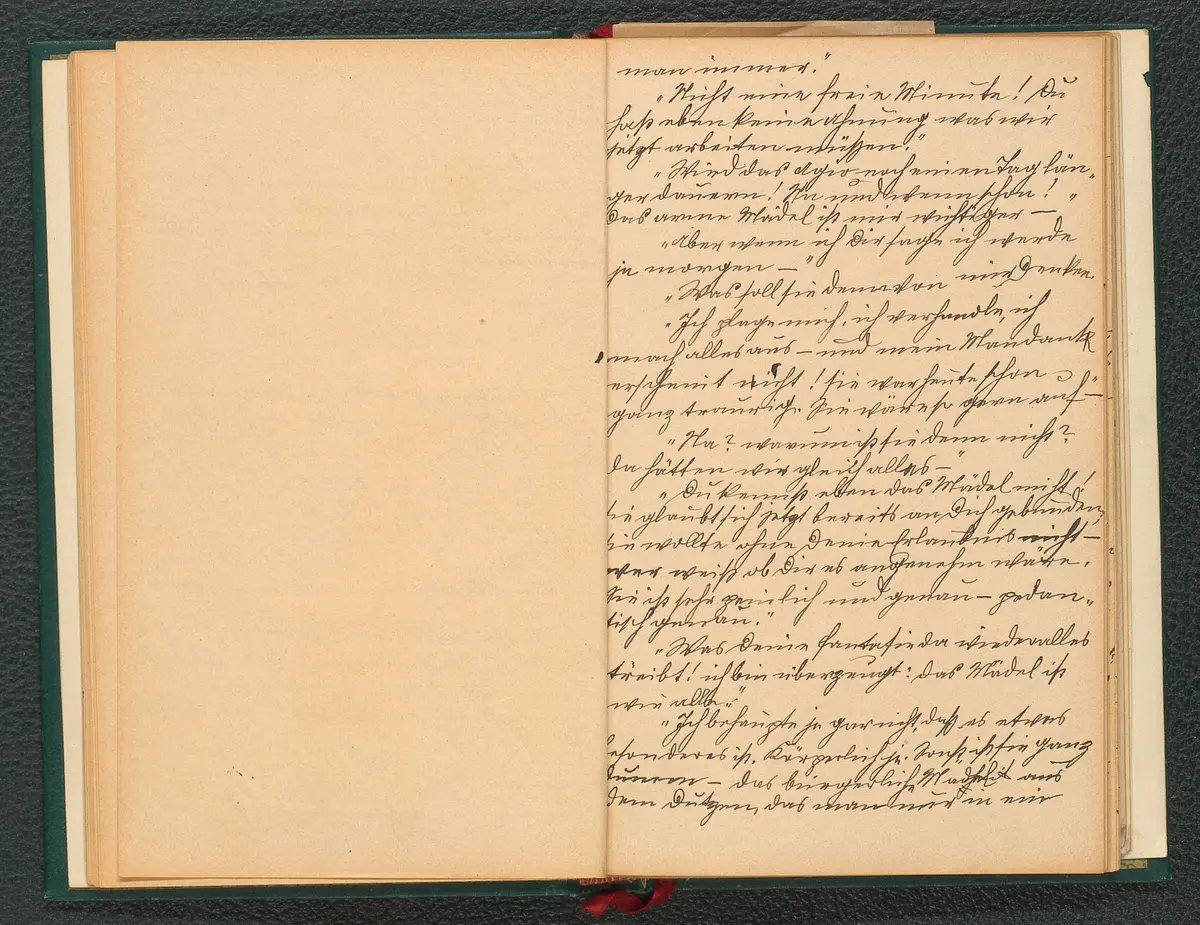 man immer."
"Nicht eine freie Minute! Du
hast eben keine Ahnung was wir
jetzt arbeiten müssen."
"Wird das Agio noch einen Tag län-
ger dauern! Na und wenn schon! "
Das arme Mädel ist mir wichtiger —
"Aber wenn ich Dir sage ich werde
ja morgen — "
"Was soll sie denn von mir denken
"Ich plage mich, ich verhandle, ich
mach alles aus — und mein Mandant
erscheint nicht! Sie war heute schon
ganz traurig. Sie wäre so gern auf —"
"Na? warum ist sie denn nicht?
da hätten wir gleich alles —"
"Du kennst eben das Mädel nicht!
Sie glaubt sich jetzt bereits an Dich gebunden,
sie wollte ohne Deine Erlaubnis nicht —
wer weiß ob Dir es angenehm wäre.
Sie ist sehr peinlich und genau — pedan-
tisch genau."
"Was Deine Fantasie da wieder alles
treibt! ich bin überzeugt: das Mädel ist
wie alle."
"Ich behaupte ja gar nicht, daß es etwas
besonderes ist. Körperlich ja. Sonst ist sie ganz
— das bürgerliche aus
dem Dutzend, das man nur in ein